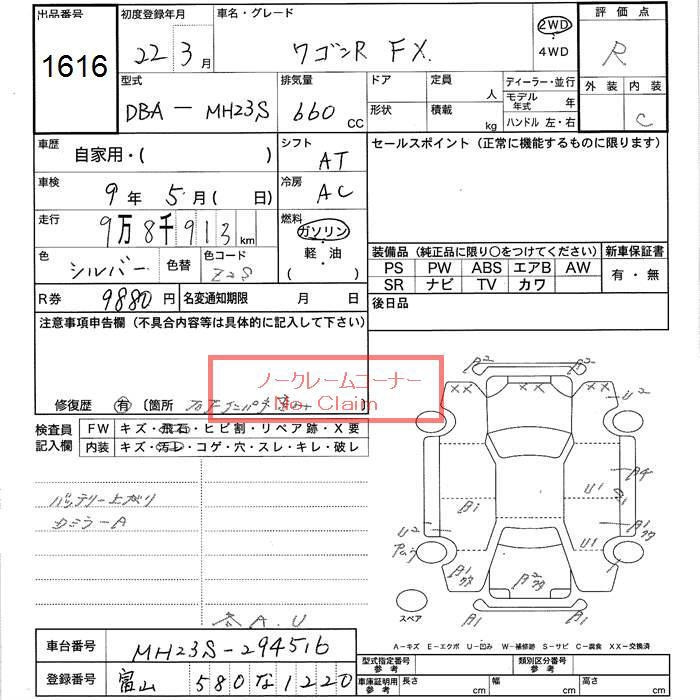 出品番号 初度登録年月 車名・グレード 評価点
1616 22 3 月 ワゴンR FX. 2WD 4WD R
外装 内装
C
型式 排気量 ドア 定員 人 ディーラー・並行
DBA - MH23S 660 CC 形状 積載 kg モデル年式 年
ハンドル 左・右
車歴 自家用・( ) シフト AT セールスポイント(正常に機能するものに限ります)
車検 9年 5月( 日) 冷房 AC
走行 9万8千913 km 燃料 ガソリン
軽・油
( )
色 シルバー 色替 色コード Z2S
装備品(純正品に限り○をつけてください) 新車保証書
PS PW ABS エアB AW 有・無
SR ナビ TV カワ
R券 9880円 名変通知期限 月 日 後日品
注意事項申告欄(不具合内容等は具体的に記入して下さい)
ノークレームコーナー
No Claim
修復歴 有 〔箇所
検査員記入欄 FW キズ・飛石・ヒビ割・リペア跡・X要
内装 キズ・汚レ・コゲ・穴・スレ・キレ・破レ
バッテリー上がり
カミラーA
各A.U
A2 A2
XX XX U2
A4
U1
A1
U2 U1 A1
A1 A2
スペア A1 A1
A-キズ E-エクボ U-凹み W-補修跡 S-サビ C-腐食 XX-交換済
車台番号 MH23S-294516
登録番号 富山 580 な 1220
型式指定番号 参考 類別区分番号 参考
車庫証明用 参考 長さ cm 幅 cm 高さ cm